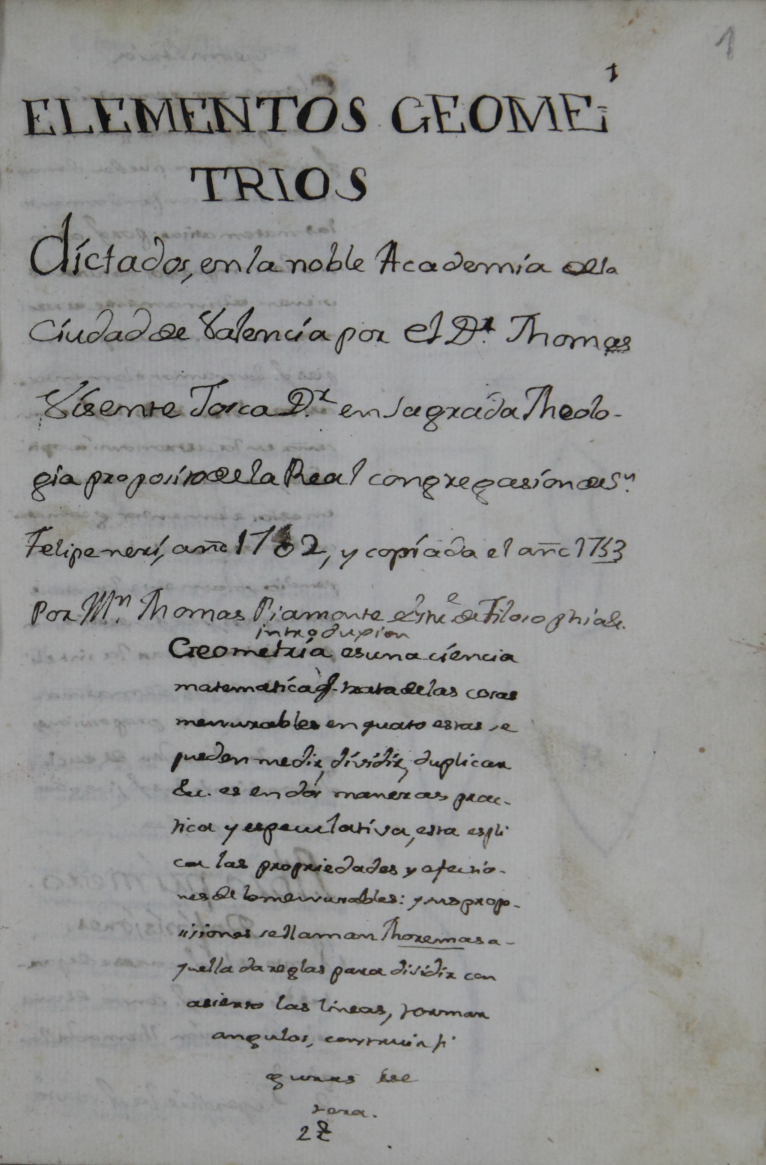 1
1
ELEMENTOS GEOME-
TRIOS
Dictados, en la noble Academia de la
Ciudad de Valencia por el D.r Thomas
Visente Tosca D.r en sagrada Theolo-
gia proposito de la Real congregasion de S.n
Felipe neri, año 1702, y copiada el año 1753
Por M.n Thomas Piamonte de Filosophia &.
introduxion
Geometria es una ciencia
matematica q. trata de las cosas
mensurables en quato estas se
pueden medir, dividir, duplicar
&c. es en dos maneras prac-
tica y especulativa, esta espli
ca las propriedades y afecsio-
nes de lo mensurables: y sus prop-
sisiones se llaman Thoremas a-
quella da reglas para dividir con
asierto las lineas, formar
angulos, construir fi
guras &c
2